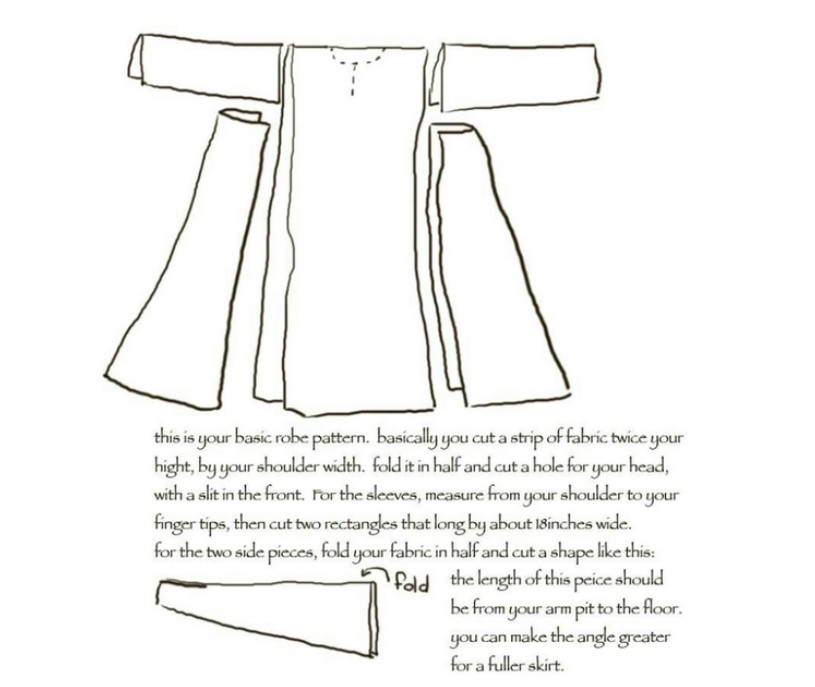 this is your basic robe pattern. basically you cut a strip of fabric twice your
hight, by your shoulder width. fold it in half and cut a hole for your head,
with a slit in the front. For the sleeves, measure from your shoulder to your
finger tips, then cut two rectangles that long by about 18inches wide.
for the two side pieces, fold your fabric in half and cut a shape like this:
fold
the length of this peice should
be from your arm pit to the floor.
you can make the angle greater
for a fuller skirt.